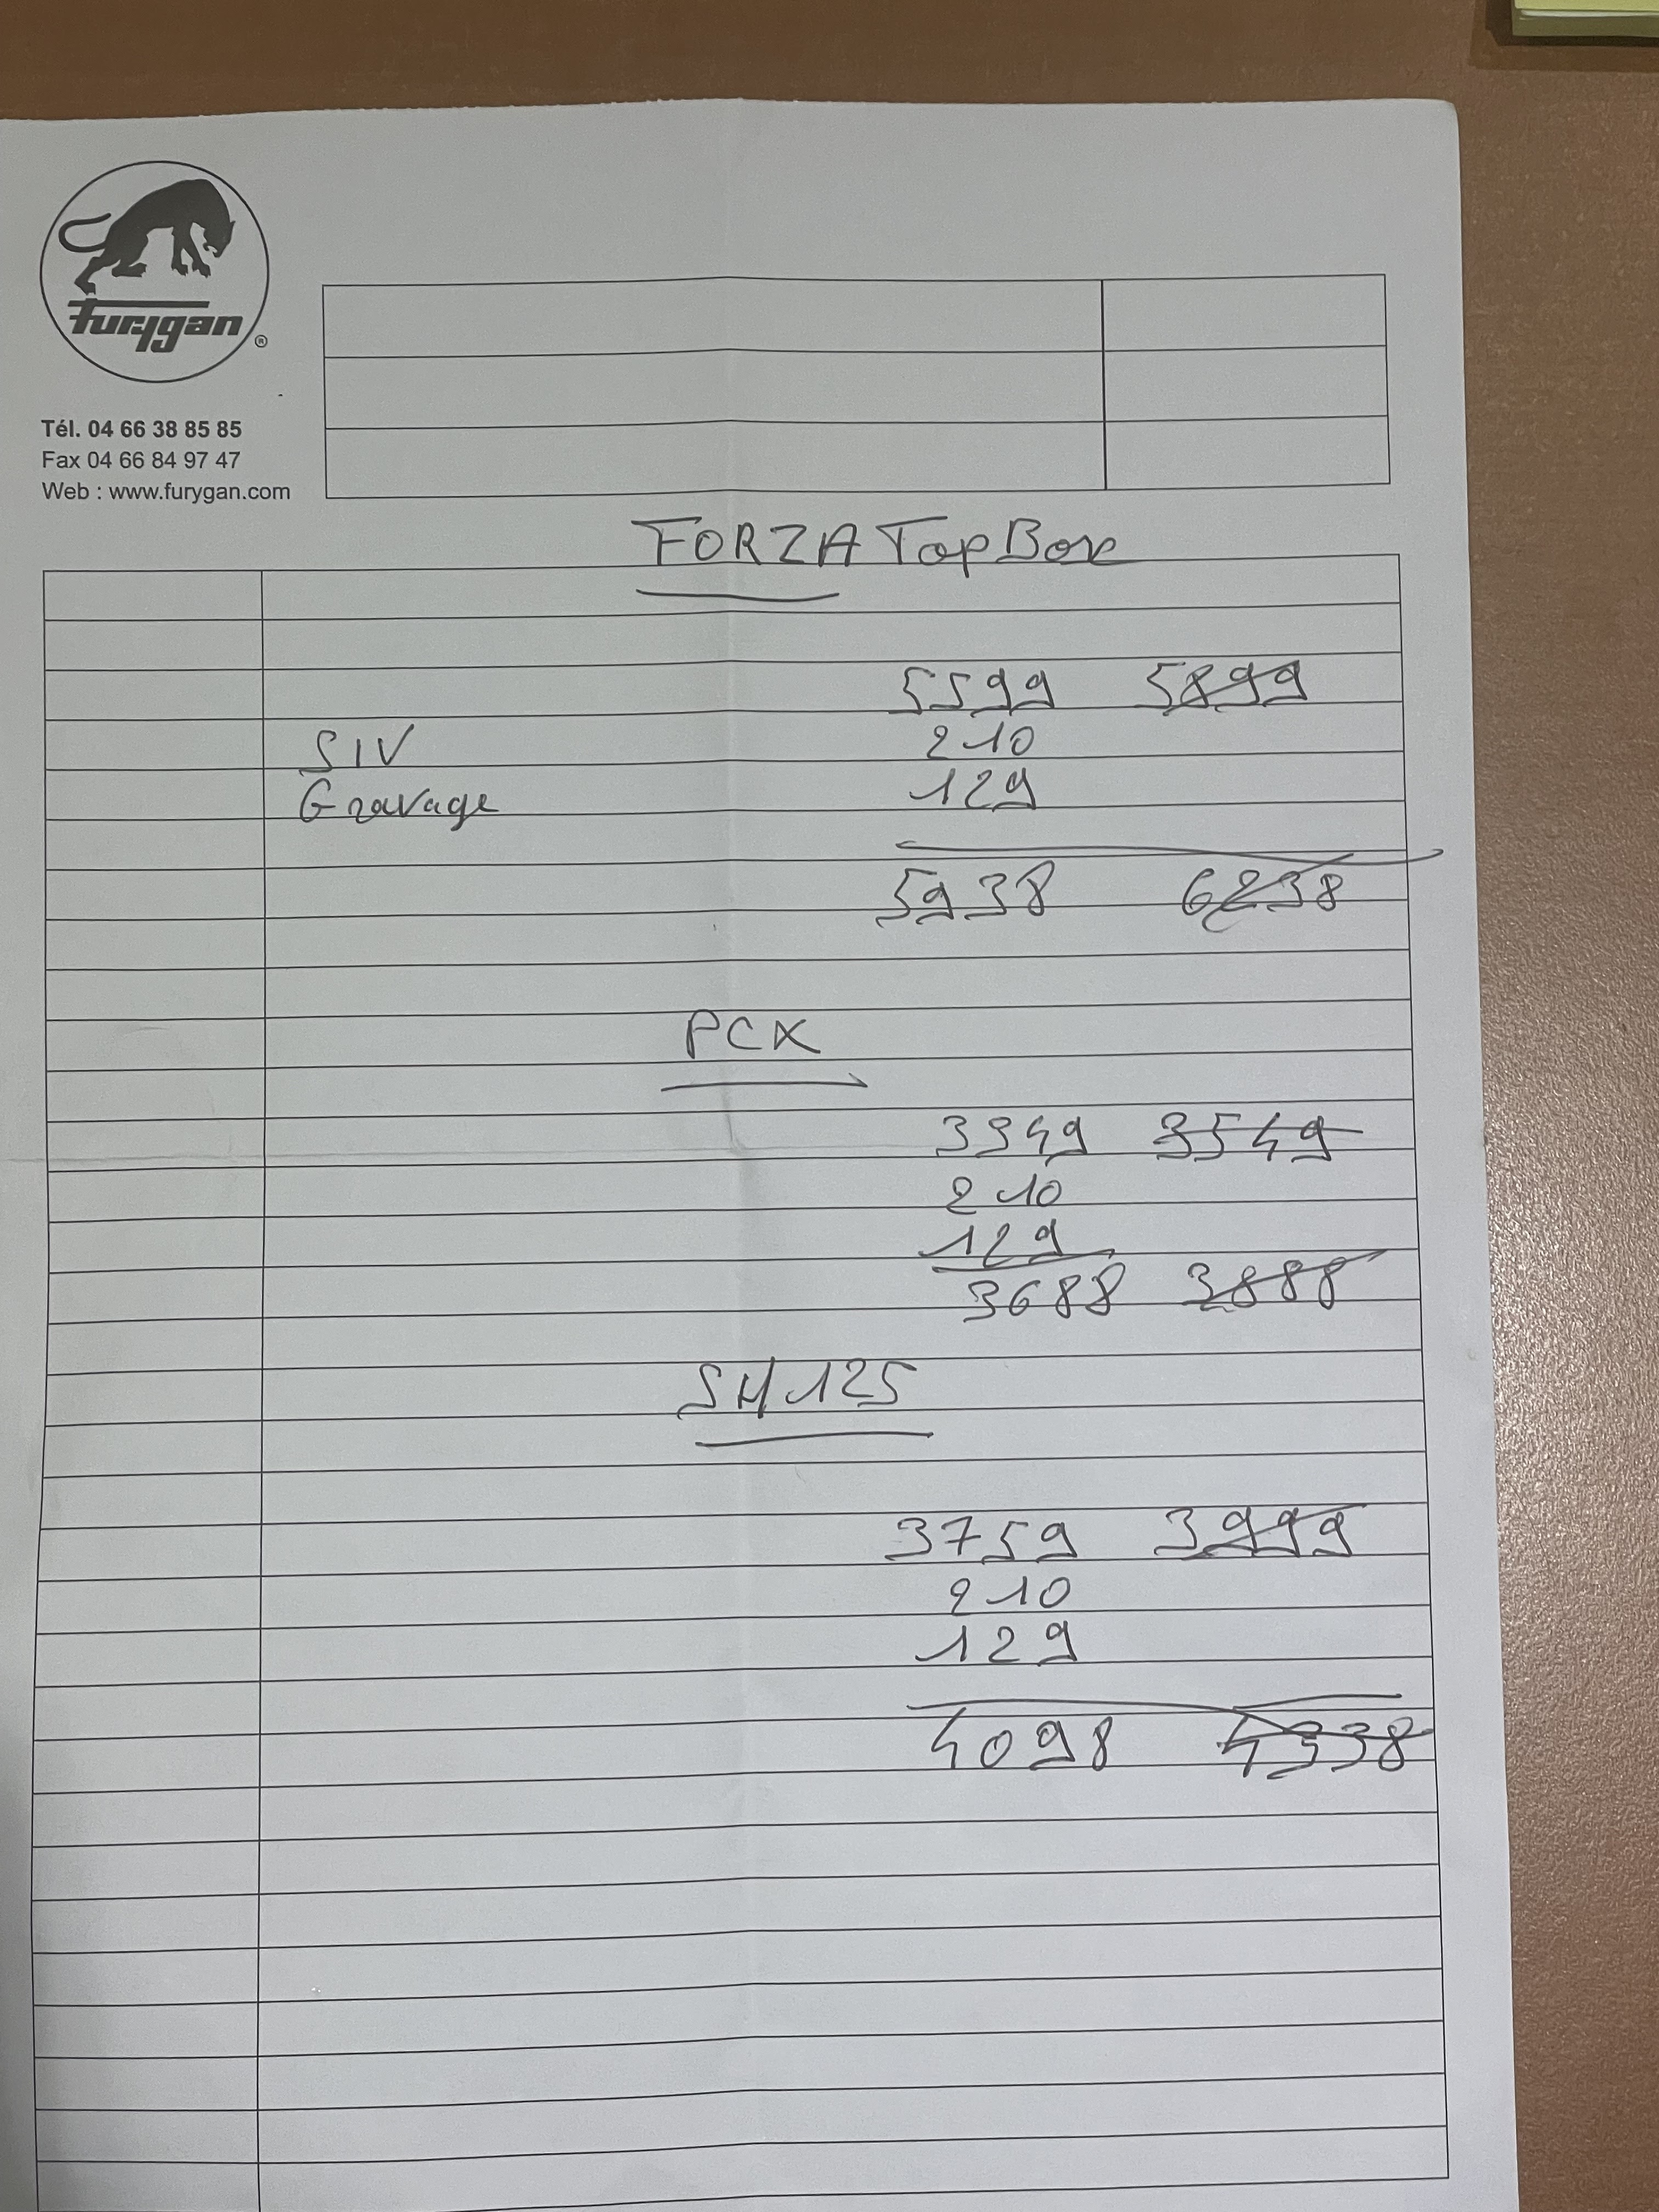 furygan ®
Tél. 04 66 38 85 85
Fax 04 66 84 97 47
Web : www.furygan.com
FORZA Top Box
5599 5899
SIV 210
Gravage 129
5938 6238
PCX
3349 3549
210
129
3688 3888
SH 125
3759 3999
210
129
4098 4338